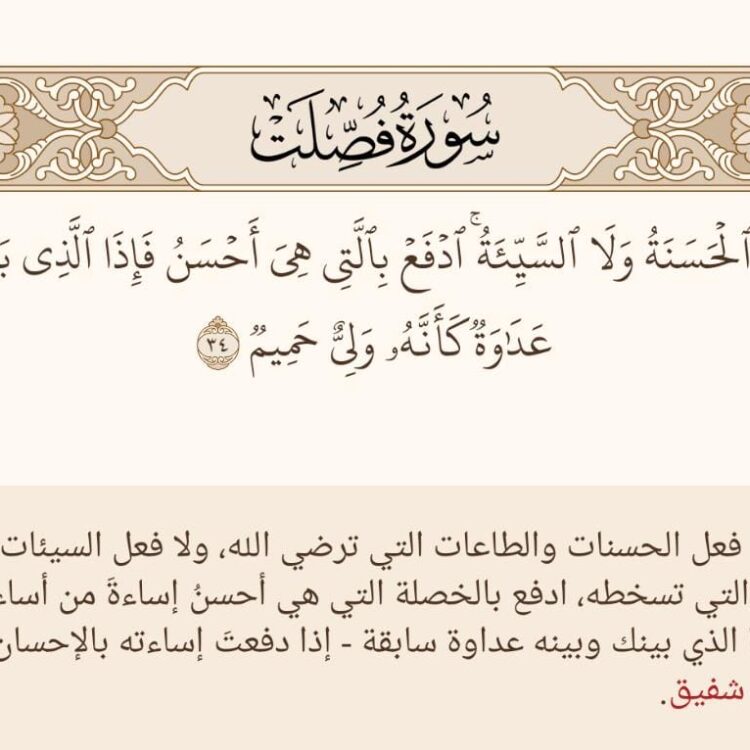 سُورَةُ فُصِّلَتْ
ٱلْحَسَنَةُ وَلَا ٱلسَّيِّئَةُۚ ٱدْفَعْ بِٱلَّتِى هِىَ أَحْسَنُ فَإِذَا ٱلَّذِى
عَدَٰوَةٌ كَأَنَّهُۥ وَلِىٌّ حَمِيمٌ ٣٤
فعل الحسنات والطاعات التي ترضي الله، ولا فعل السيئات
التي تسخطه، ادفع بالخصلة التي هي أحسنُ إساءةَ من
الذي بينك وبينه عداوة سابقة - إذا دفعتَ إساءته بالإحسان
شفيق.